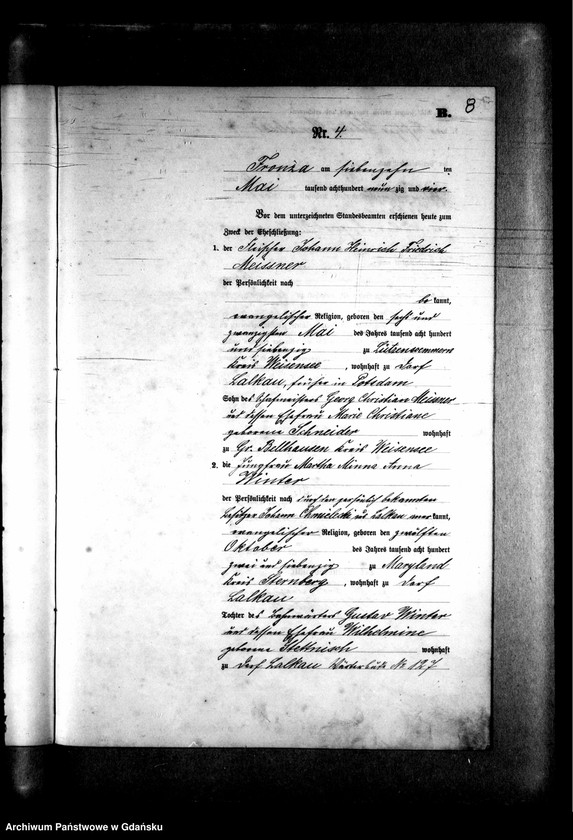 8
B.
Nr. 4.
Fronza am siebenzehn ten
Mai tausend achthundert neun zig und vier.
Vor dem unterzeichneten Standesbeamten erschienen heute zum
Zweck der Eheschließung:
1. der Fleischer Johann Heinrich Friedrich
Meissner
der Persönlichkeit nach
be kannt,
evangelischer Religion, geboren den sechs und
zwanzigsten Mai des Jahres tausend acht hundert
und siebenzig zu Litzensommern
Kreis Weisensee, wohnhaft zu Dorf
Lalkau, früher in Potsdam
Sohn des Schafmeisters Georg Christian Meissner
und dessen Ehefrau Marie Christiane
geborene Schneider wohnhaft
zu Gr. Bellhausen Kreis Weisensee
2. die Jungfrau Martha Minna Anna
Winter
der Persönlichkeit nach durch den persönlich bekannten
Besitzer Johann Chmielecki aus Lalkau aner kannt,
evangelischer Religion, geboren den zwölften
Oktober des Jahres tausend acht hundert
zwei und siebenzig zu Maryland
Kreis Sternberg, wohnhaft zu Dorf
Lalkau
Tochter des Bahnwärters Gustav Winter
und dessen Ehefrau Wilhelmine
geborene Stettnisch wohnhaft
zu Dorf Lalkau Wärterbude No 127
Archiwum Państwowe w Gdańsku